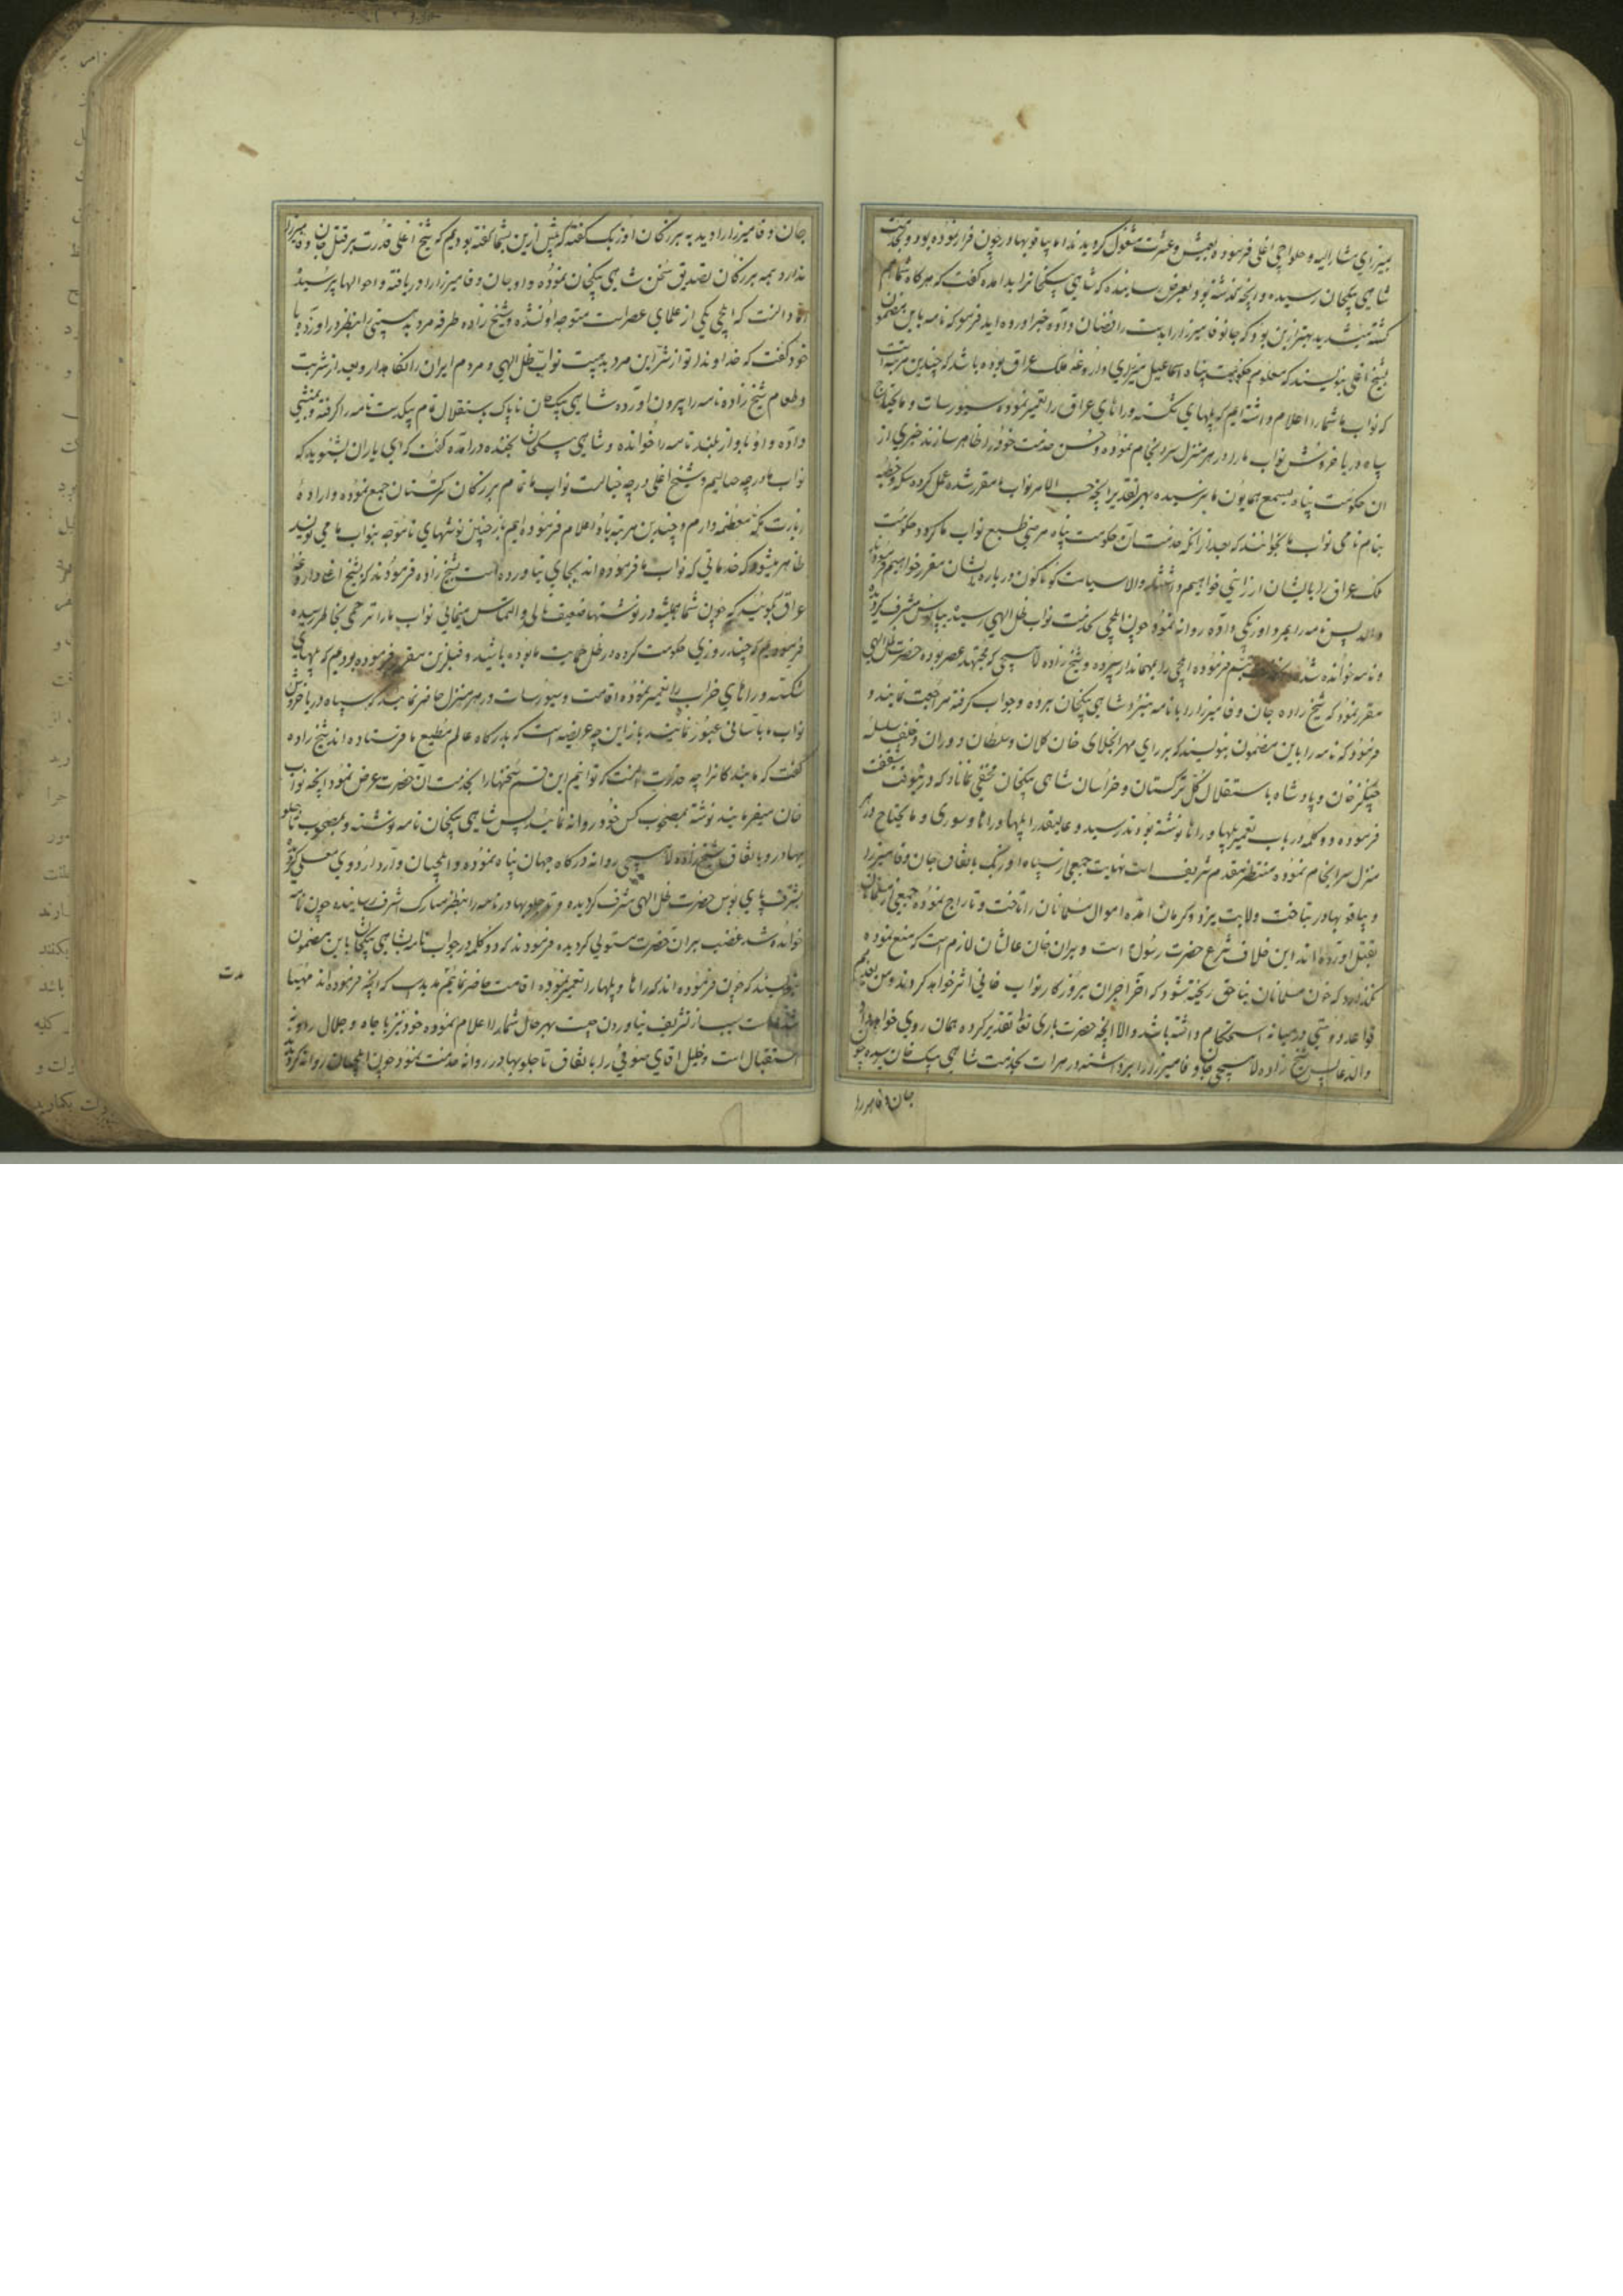 میرزای مشارالیه و حلواجی اغلی فرموده بعیش و عشرت مشغول گردیدند اما پیاقو بهادر چون فرار نموده بود و بخدمت
شاهی بیکخان رسیده و آنچه گذشته بود بعرض رسانیده که شاهی بیکخانرا بد آمده گفت که هرگاه شما هم
کشته میشدید بهتر ازین بود که جان وفا میرزا را بدست رافضیان داده خبر آورده اید فرمود که نامه باین مضمون
بشیخ اغلی بنویسند که معلوم حکومت پناه اسماعیل میرزای داروغه ملک عراق بوده باشد که چندین مرتبه است
که نواب ما شما را اعلام داشته ایم که پلهای شکسته و راهای عراق را تعمیر نموده سیورسات و مایحتاج
سپاه دریا خروش نواب ما را در هر منزل سرانجام نموده و حسن خدمت خود را ظاهر سازند خبری از
ان حکومت پناه بسمع همایون ما نرسیده بهر تقدیر آنچه حسب الامر نواب ما مقرر شده عمل کرده سکه و خطبه
بنام نامی نواب ما بخوانند که بعد از آنکه خدمت آن حکومت پناه مرضی طبع نواب ما گردد حکومت
ملک عراق را بایشان ارزانی خواهیم داشت والا سیاست گوناگون درباره ایشان مقرر خواهیم فرمود
والله پس نامه را بمرد اوزبکی داده روانه نمود چون ایلچی بخدمت نواب ظل الهی رسید بپابوس مشرف گردید
و نامه خوانده شد تبسم فرموده ایلچی را بمهماندار سپرده و شیخ زاده لاهیجی که مجتهد عصر بوده حضرت ظل الهی
مقرر نمود که شیخ زاده جان وفا میرزا را با نامه مبنزد شاهی بیکخان برده و جواب گرفته مراجعت نمایند و
فرمود که نامه را باین مضمون بنویسند که بر رای مهر انجلای خان کلان و سلطان دوران و خلف سلسله
چنگیز خان و پادشاه باستقلال کل ترکستان و خراسان شاهی بیکخان مخفی نماناد که درینوقت شفقت
فرموده دو کلمه در باب تعمیر پلها و راها نوشته بودند رسید و عالیقدرا پلها و راها و سوری و مایحتاج در هر
منزل سرانجام نموده منتظر مقدم شریف است نهایت جمعی از سپاه اوزبک باتفاق جان وفا میرزا
و پیاقو بهادر بتاخت ولایت یزد و کرمان آمده اموال مسلمانان را تاخت و تاراج نموده جمعی از مسلمانان
بقتل آورده اند این خلاف شرع حضرت رسول است و بران خان عالیشان لازم است که منع نموده
نگذارد که خون مسلمانان بناحق ریخته شود که آخر آجران بروزگار نواب خانی اثر خواهد کرد و من بعد هم
قواعد دوستی در میانه استحکام داشته باشد والا آنچه حضرت باری تعالی تقدیر کرده همان روی خواهد داد
والدعا پس شیخ زاده لاهیجی جان وفا میرزا را برداشته در هرات بخدمت شاهی بیک خان رسیده چو
جان وفا میرزا
جان وفا میرزا را دید به بزرگان اوزبک گفته که پیش ازین بشما گفته بودیم که شیخ اغلی قدرت بر قتل جان وفا میرزا
ندارد همه بزرگان تصدیق سخن شاهی بیکخان نموده و او جان وفا میرزا را دریافته و احوالها پرسید
اما دانست که ایلچی یکی از علمای عصر است متوجه او نشده و شیخ زاده طرفه مرد بد هیبتی را بنظر درآورده با
خود گفت که خداوندا تو از شر این مرد بد هیبت نواب ظل الهی و مردم ایران را نگاهدار و بعد از شربت
و طعام شیخ زاده نامه را بیرون آورده شاهی بیکخان ناپاک بنقلان قام بیکدست نامه را گرفته و بمنشی
داده و او بآواز بلند نامه را خوانده و شاهی بیکخان بخنده درآمده گفت که ای یاران بشنوید که
نواب ما در چه حالیم و شیخ اغلی در چه خیالست نواب ما تمام بزرگان ترکستان جمع نموده و اراده
زیارت مکه معظمه دارم و چندین مرتبه باو اعلام فرموده ایم باز چنین نوشتهای نامتوجه بنواب ما می نویسد
ظاهر میشود که خدماتی که نواب ما فرموده اند بجای نیاورده است بشیخ زاده فرمودند که بشیخ اغلی داروغه
عراق بگوئید که چون شما همیشه در نوشتها ضعیف نالی و التماس مینمائی نواب ما را ترحمی بخاطر رسیده
فرمودیم که چند روزی حکومت کرده در ظل حمایت ما بوده باشید و قبل ازین مقرر فرموده بودیم که پلهای
شکسته و راهای خراب را تعمیر نموده اقامت و سیورسات در هر منزل حاضر نمایند که سپاه دریا خروش
نواب ما بآسانی عبور نمایند باز این چه عریضه است که بدرگاه عالم مطیع ما فرستاده اند شیخ زاده
گفت که ما بندگانرا چه حد و قدرت است که توانیم این قسم سخنها را بخدمت آن حضرت عرض نمود آنچه نواب
خان میفرمایند نوشته بمصحوب کس خود روانه نمایند پس شاهی بیکخان نامه نوشته و بمصحوب تاجلو
بهادر و باتفاق شیخ زاده لاهیجی روانه درگاه جهان پناه نموده و ایلچیان وارد اردوی معلی گردیده
بشرف پای بوس حضرت ظل الهی مشرف گردیده و تاجلو بهادر نامه را بنظر مبارک اشرف رسانیده چون نامه
خوانده شد غضب بران حضرت مستولی گردیده فرمودند که دو کلمه در جواب نامه شاهی بیکخان باین مضمون
بنویسند که چون فرموده اند که راها و پلها را تعمیر نموده اقامت حاضر نمائیم مدتیست که آنچه فرموده اند مهیا
شده است سبب از تشریف نیاوردن چیست بهر حال شما را اعلام نموده خود نیز با جاه و جلال روانه
استقبال است و خلیل اقای صوفی را باتفاق تاجلو بهادر روانه خدمت نمود چون ایلچیان روانه گردیدند
مدت